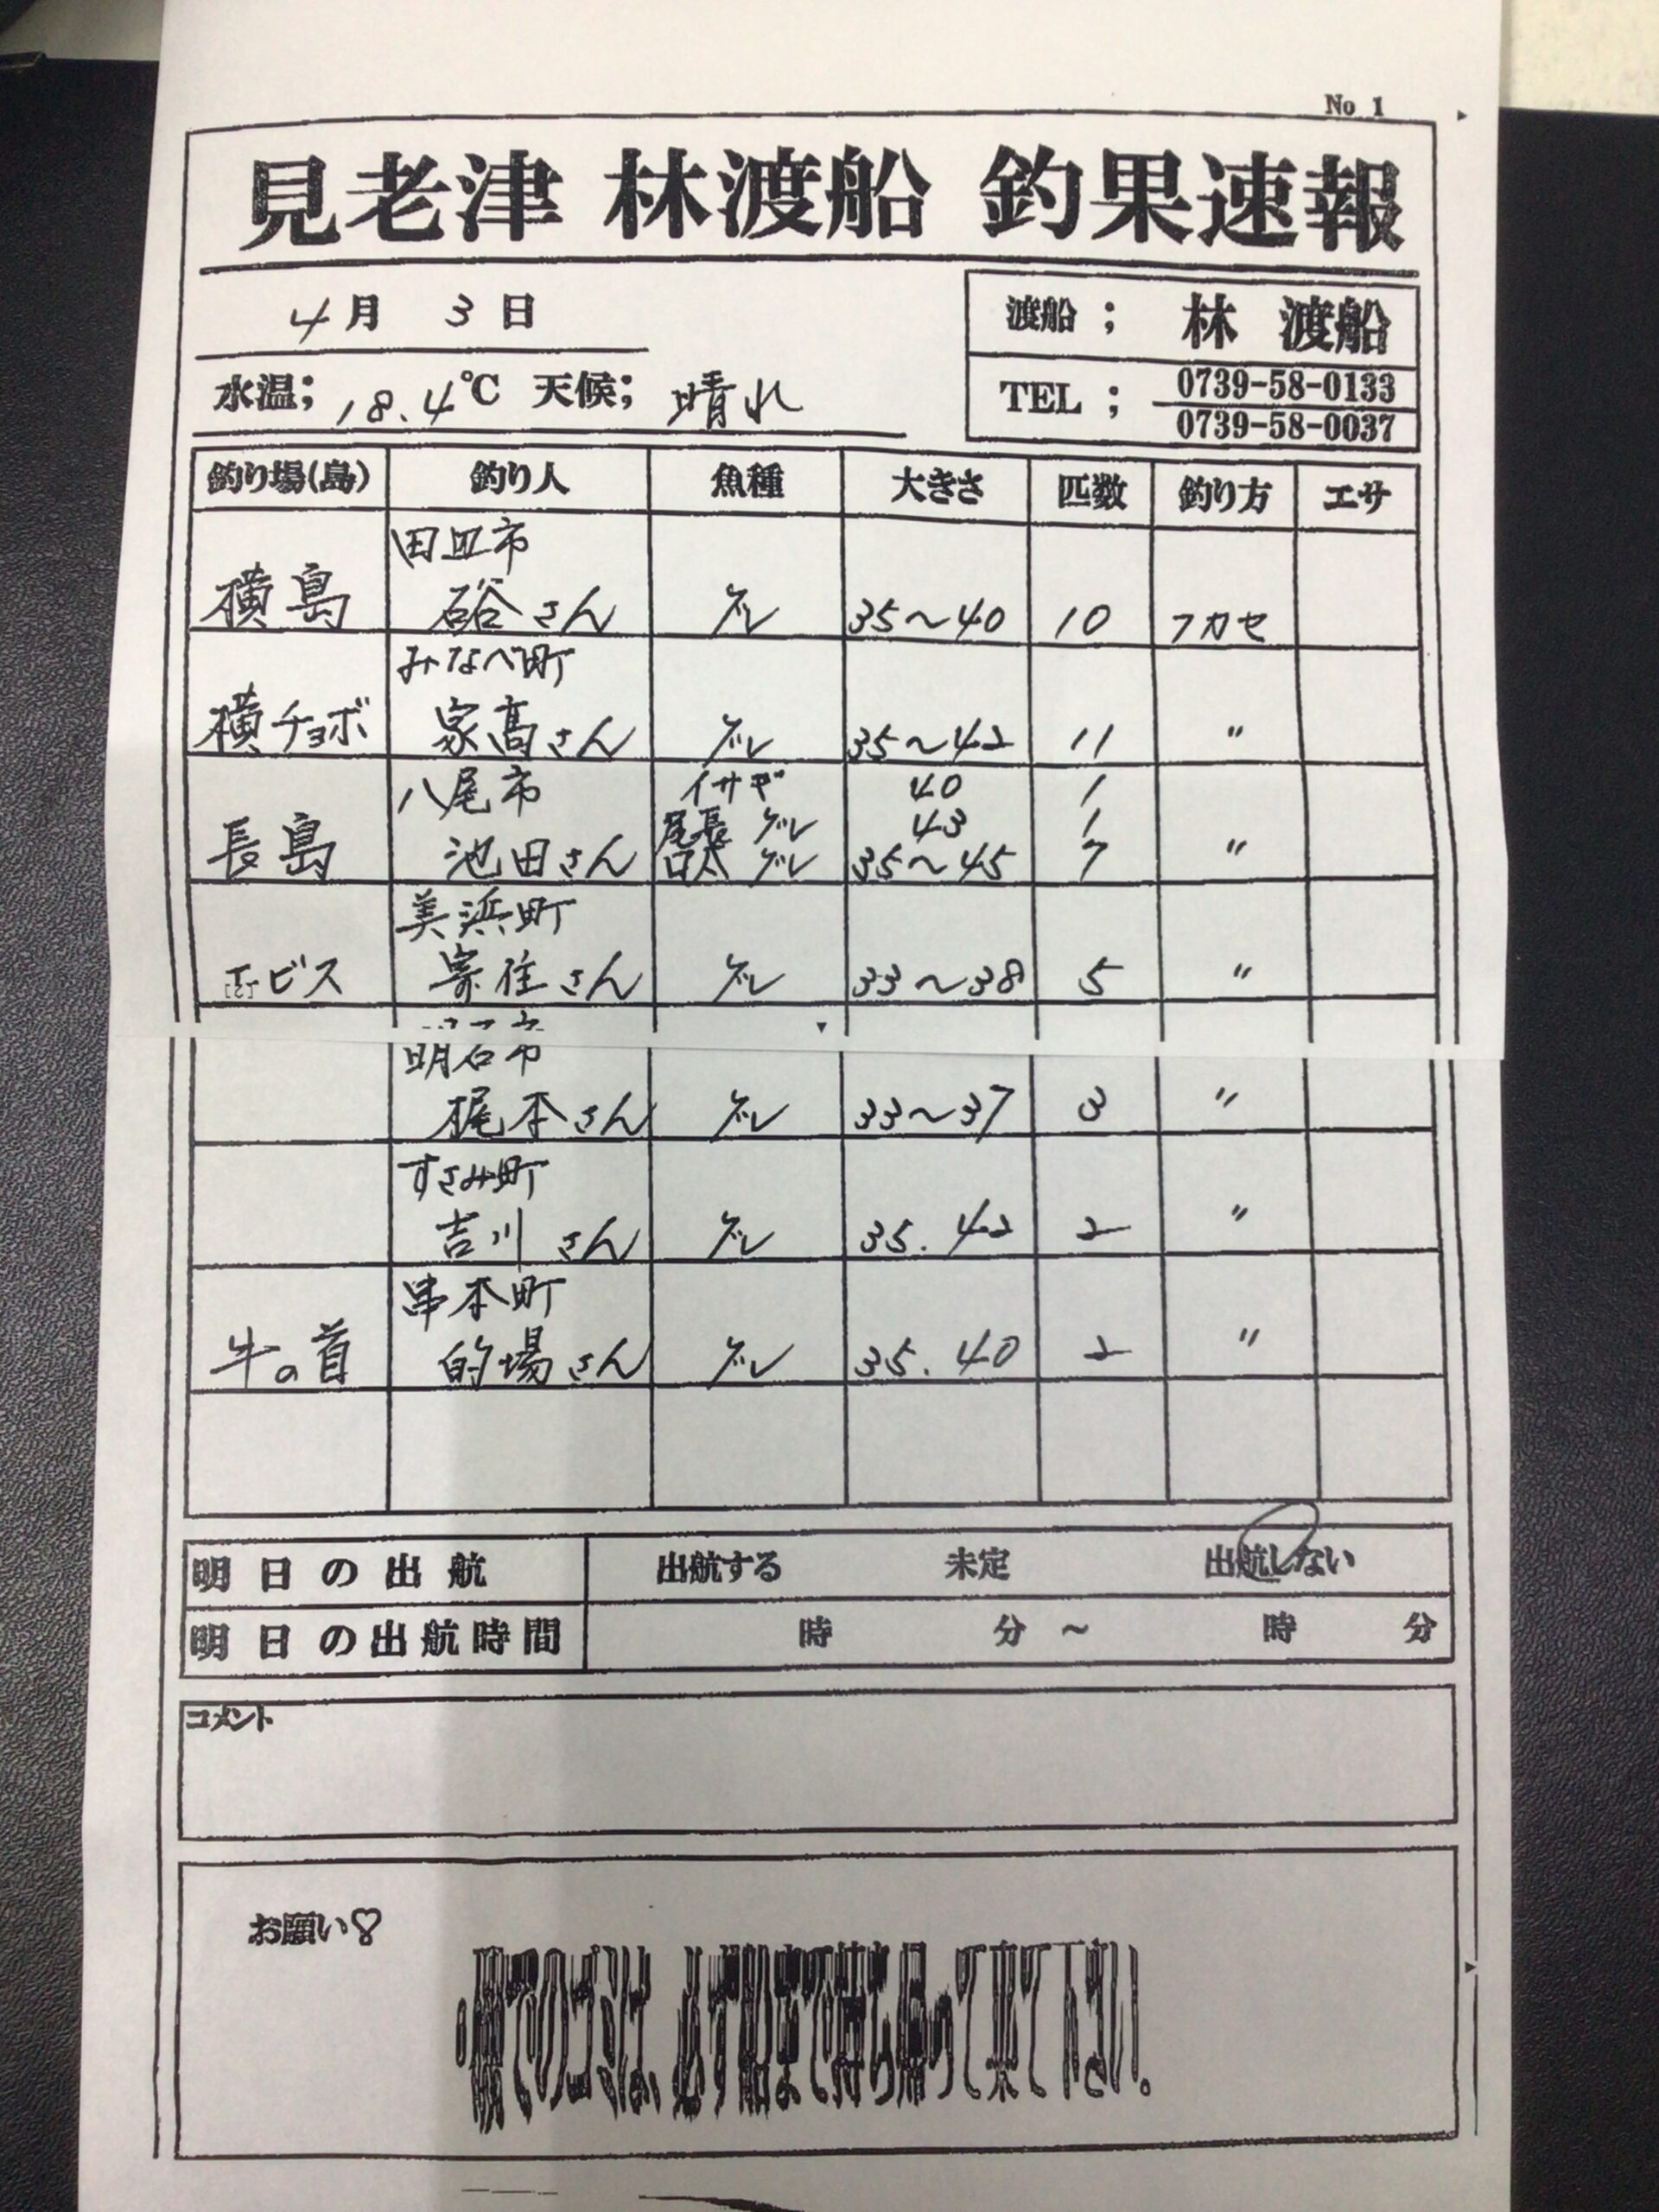 No 1
見老津 林渡船 釣果速報
4月 3日
渡船; 林 渡船
水温; 18.4℃ 天候; 晴れ
TEL; 0739-58-0133
0739-58-0037
釣り場(島) 釣り人 魚種 大きさ 匹数 釣り方 エサ
田辺市
横島 硲さん グレ 35〜40 10 フカセ
みなべ町
横チョボ 家高さん グレ 35〜42 11 〃
八尾市 イサギ 40 1
尾長 グレ 43 1
長島 池田さん 口太 グレ 35〜45 7 〃
美浜町
エビス 寄住さん グレ 33〜38 5 〃
明石市
梶本さん グレ 33〜37 3 〃
すさみ町
吉川さん グレ 35.42 2 〃
串本町
牛の首 的場さん グレ 35.40 2 〃
明日の出航 出航する 未定 出航しない
明日の出航時間 時 分 〜 時 分
コメント
お願い♡
・磯でのゴミは、必ず船まで持ち帰って来て下さい。